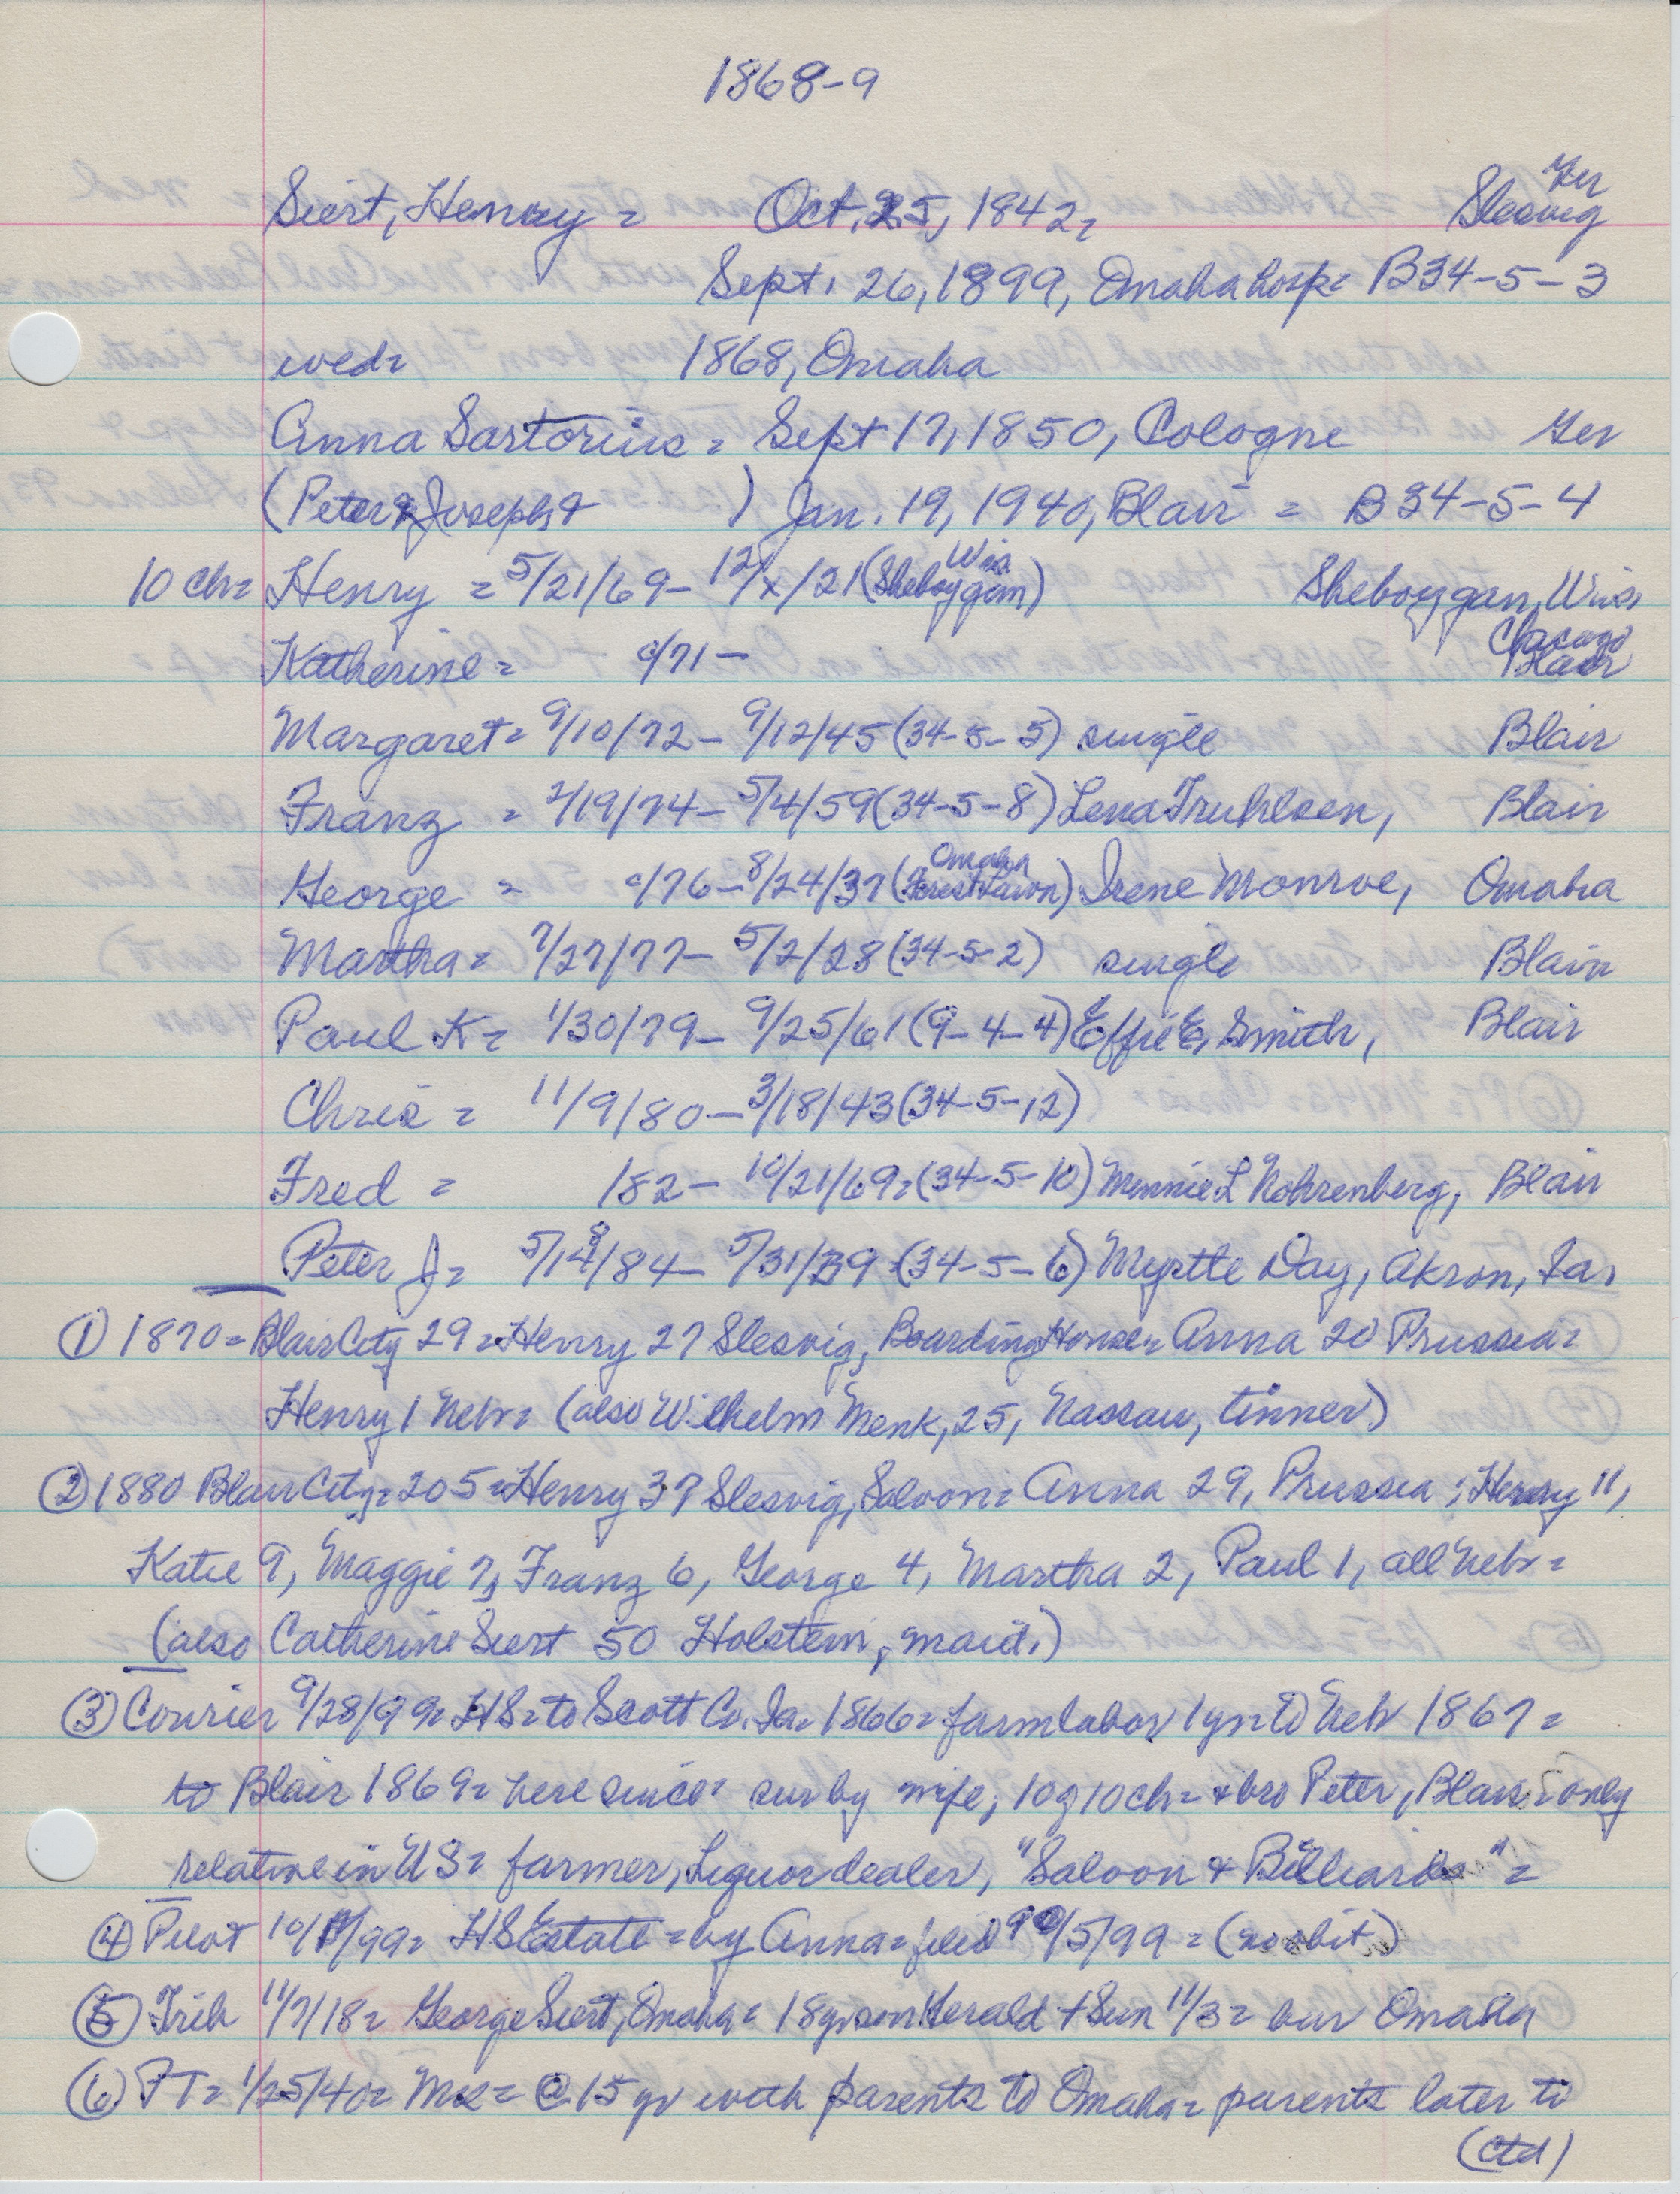 1868-9
Siert, Henry = Oct. 25, 1842, Slesvig Ger
Sept. 26, 1899, Omaha hosp = B34-5-3
wed= 1868, Omaha
Anna Sartorius = Sept 17, 1850, Cologne Ger
(Peter & Joseph & ) Jan. 19, 1940, Blair = B34-5-4
10 ch= Henry = 5/21/69- 12/x/21 (Sheboygan Wis) Sheboygan, Wis
Katherine = c/71- Chicago Blair
Margaret = 9/10/72- 9/12/45 (34-5-5) single Blair
Franz = 2/19/74- 5/4/59 (34-5-8) Lena Truhlsen, Blair
George = c/76-8/24/37 (Forest Lawn Omaha) Irene Monroe, Omaha
Martha = 7/27/77- 5/2/28 (34-5-2) single Blair
Paul K= 1/30/79- 9/25/61 (9-4-4) Effie E. Smith, Blair
Chris = 11/9/80-3/18/43 (34-5-12)
Fred = 182- 10/21/69=(34-5-10) Minnie L Nohrenberg, Blair
Peter J= 5/14/84- 5/31/39 (34-5-6) Myrtle Day, Akron, Ia.
① 1870= Blair City 29= Henry 27 Slesvig, Boarding House= Anna 20 Prussia=
Henry 1 Nebr= (also Wilhelm Menk, 25, Nassau, tinner)
② 1880 Blair City= 205= Henry 37 Slesvig, Saloon= Anna 29, Prussia; Henry 11,
Katie 9, Maggie 7, Franz 6, George 4, Martha 2, Paul 1, all Nebr=
(also Catherine Siert 50 Holstein, maid.)
③ Courier 9/28/99= HS= to Scott Co. Ia= 1866= farm labor 1 yr= to Neb 1867=
to Blair 1869= here since= sur by wife, 10 g 10 ch= + bro Peter, Blair= only
relative in US= farmer, Liquor dealer, "Saloon & Billiards"=
④ Pilot 10/ /99= HS Estate= by Anna= filed /5/99= (no obit)
⑤ Trib 11/7/18= George Siert, Omaha= 18 yrs on Herald + Sun 11/3= bur Omaha
⑥ PT= 1/25/40= Mrs= @ 15 yr with parents to Omaha= parents later to
(ctd)